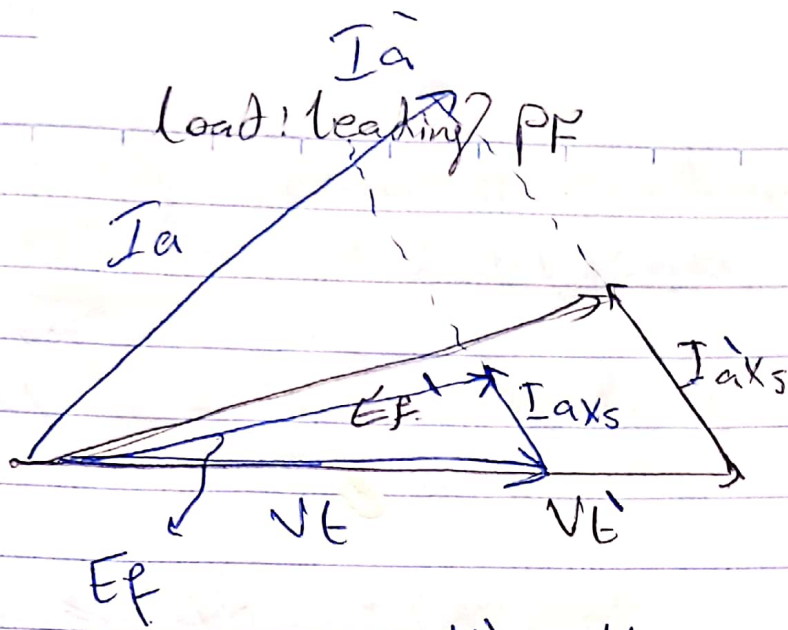 Ia`
Load: leading PF
Ia
Ef`
IaXs
Ia`Xs
Vt
Vt`
Ef